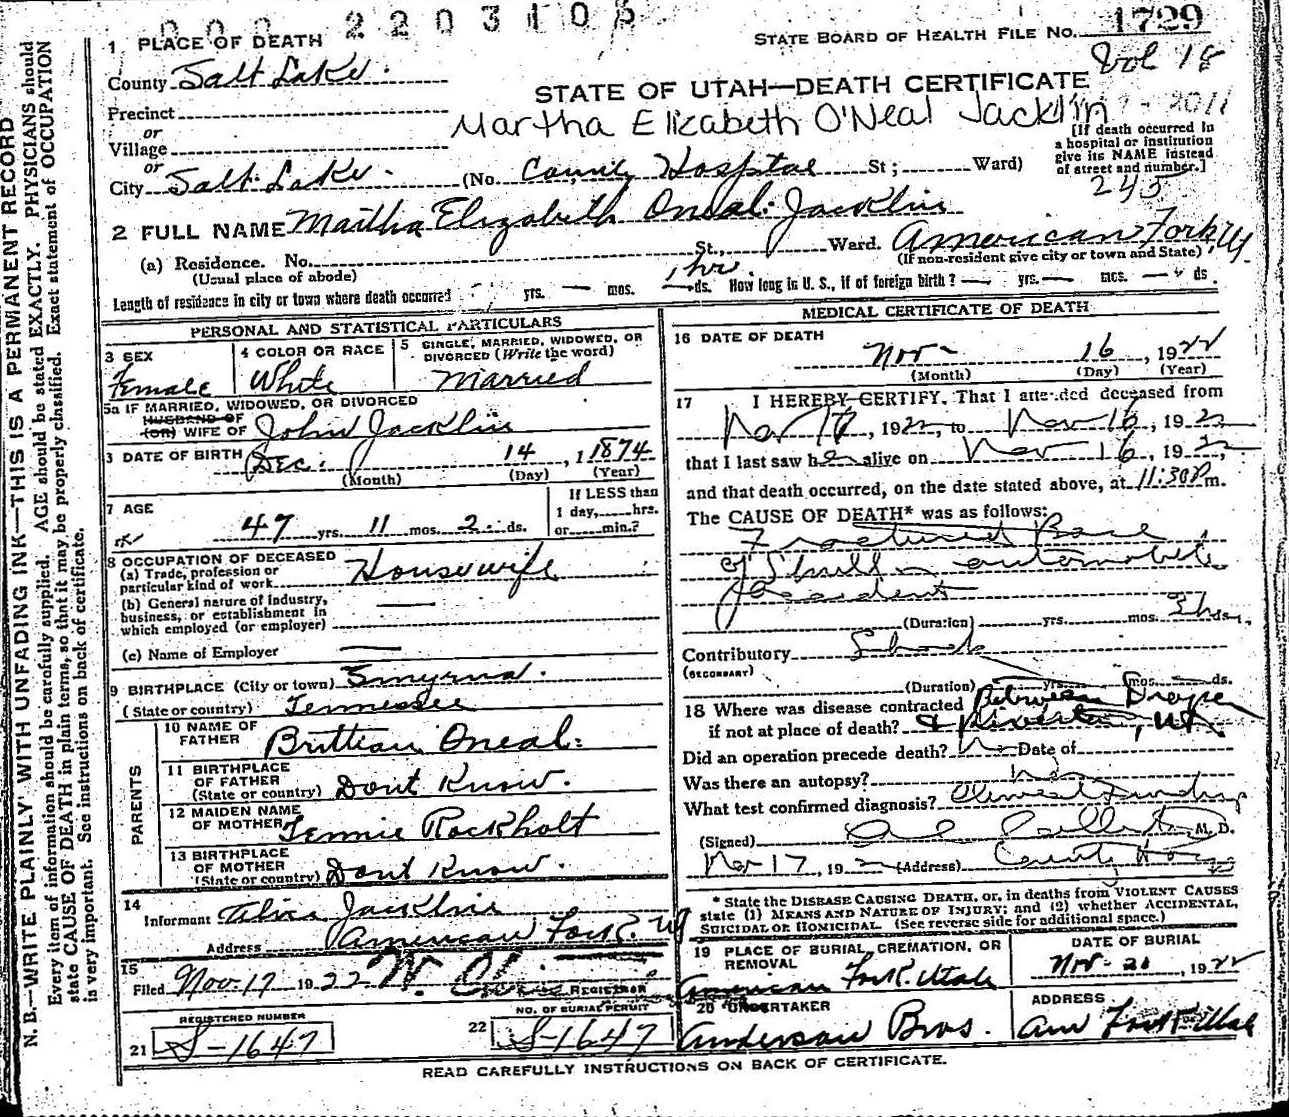 002203105
1729
STATE BOARD OF HEALTH FILE NO.
Vol 18
1 PLACE OF DEATH
County Salt Lake.
STATE OF UTAH—DEATH CERTIFICATE
Precinct
Martha Elizabeth O'Neal Jacklin
or
Village
[If death occurred in
a hospital or institution
give its NAME instead
of street and number.]
or
City Salt Lake. (No. County Hospital St; Ward)
245
2 FULL NAME Martha Elizabeth Oneal Jacklin
(a) Residence. No. St., Ward. American Fork, Ut
(Usual place of abode)
(If non-resident give city or town and State)
1 hr.
Length of residence in city or town where death occurred yrs. — mos. — ds. How long in U. S., if of foreign birth? — yrs. — mos. — ds
PERSONAL AND STATISTICAL PARTICULARS
3 SEX
Female
4 COLOR OR RACE
White
5 SINGLE, MARRIED, WIDOWED, OR
DIVORCED (Write the word)
Married
5a IF MARRIED, WIDOWED, OR DIVORCED
HUSBAND OF
(OR) WIFE OF John Jacklin
DATE OF BIRTH Dec. 14, 1874
(Month) (Day) (Year)
7 AGE
47 yrs. 11 mos. 2 ds.
If LESS than
1 day, hrs.
or min.?
8 OCCUPATION OF DECEASED
(a) Trade, profession or
particular kind of work Housewife
(b) General nature of Industry,
business, or establishment in
which employed (or employer) —
(c) Name of Employer —
9 BIRTHPLACE (City or town) Smyrna.
(State or country) Tennessee
PARENTS
10 NAME OF
FATHER Brittian Oneal.
11 BIRTHPLACE
OF FATHER
(State or country) Dont Know.
12 MAIDEN NAME
OF MOTHER Jennie Rockholt
13 BIRTHPLACE
OF MOTHER
(State or country) Dont Know.
14
Informant Jacklin
Address American Fork. Ut
15
Filed Nov. 17 1922 W.
REGISTRAR
REGISTERED NUMBER
21 S-1647
NO. OF BURIAL PERMIT
22 S-1647
MEDICAL CERTIFICATE OF DEATH
16 DATE OF DEATH
Nov- 16, 1922
(Month) (Day) (Year)
17 I HEREBY CERTIFY, That I attended deceased from
Nov 16, 1922, to Nov 16, 1922
that I last saw her alive on Nov 16, 1922,
and that death occurred, on the date stated above, at 11:30 P m.
The CAUSE OF DEATH* was as follows:
Fractured Base
of Skull in automobile
accident
(Duration) yrs. mos. 3 hrs ds.
Contributory Shock
(SECONDARY)
(Duration) yrs. mos. ds.
18 Where was disease contracted Between Draper
if not at place of death? & Riverton, Ut
Did an operation precede death? No Date of
Was there an autopsy? No
What test confirmed diagnosis? Clinical
(Signed) M. D.
Nov 17, 1922 (Address) County Hosp
* State the DISEASE CAUSING DEATH, or, in deaths from VIOLENT CAUSES
state (1) MEANS AND NATURE OF INJURY; and (2) whether ACCIDENTAL,
SUICIDAL OR HOMICIDAL. (See reverse side for additional space.)
19 PLACE OF BURIAL, CREMATION, OR
REMOVAL
American Fork. Utah
DATE OF BURIAL
Nov- 20, 1922
20 UNDERTAKER
Anderson Bros.
ADDRESS
Am Fork Utah
READ CAREFULLY INSTRUCTIONS ON BACK OF CERTIFICATE.
N. B.—WRITE PLAINLY WITH UNFADING INK—THIS IS A PERMANENT RECORD
Every item of information should be carefully supplied. AGE should be stated EXACTLY. PHYSICIANS should
state CAUSE OF DEATH in plain terms, so that it may be properly classified. Exact statement of OCCUPATION
is very important. See instructions on back of certificate.